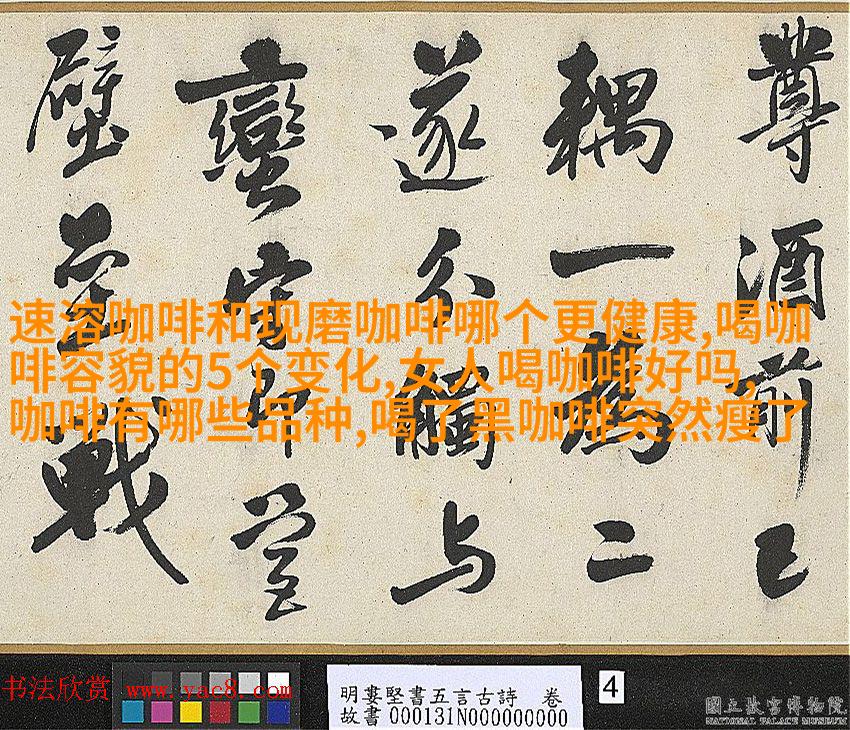 尊酒前已
耦一二
遂觸与
蠻
壁戰
速溶咖啡和现磨咖啡哪个更健康,喝咖
啡容貌的5个变化,女人喝咖啡好吗,
咖啡有哪些品种,喝了黑咖啡突然瘦了
书法欣赏 www.yac8.com
明婁堅書五言古詩 卷
故書000131N000000000
4
國立故宮博物院
NATIONAL PALACE MUSEUM